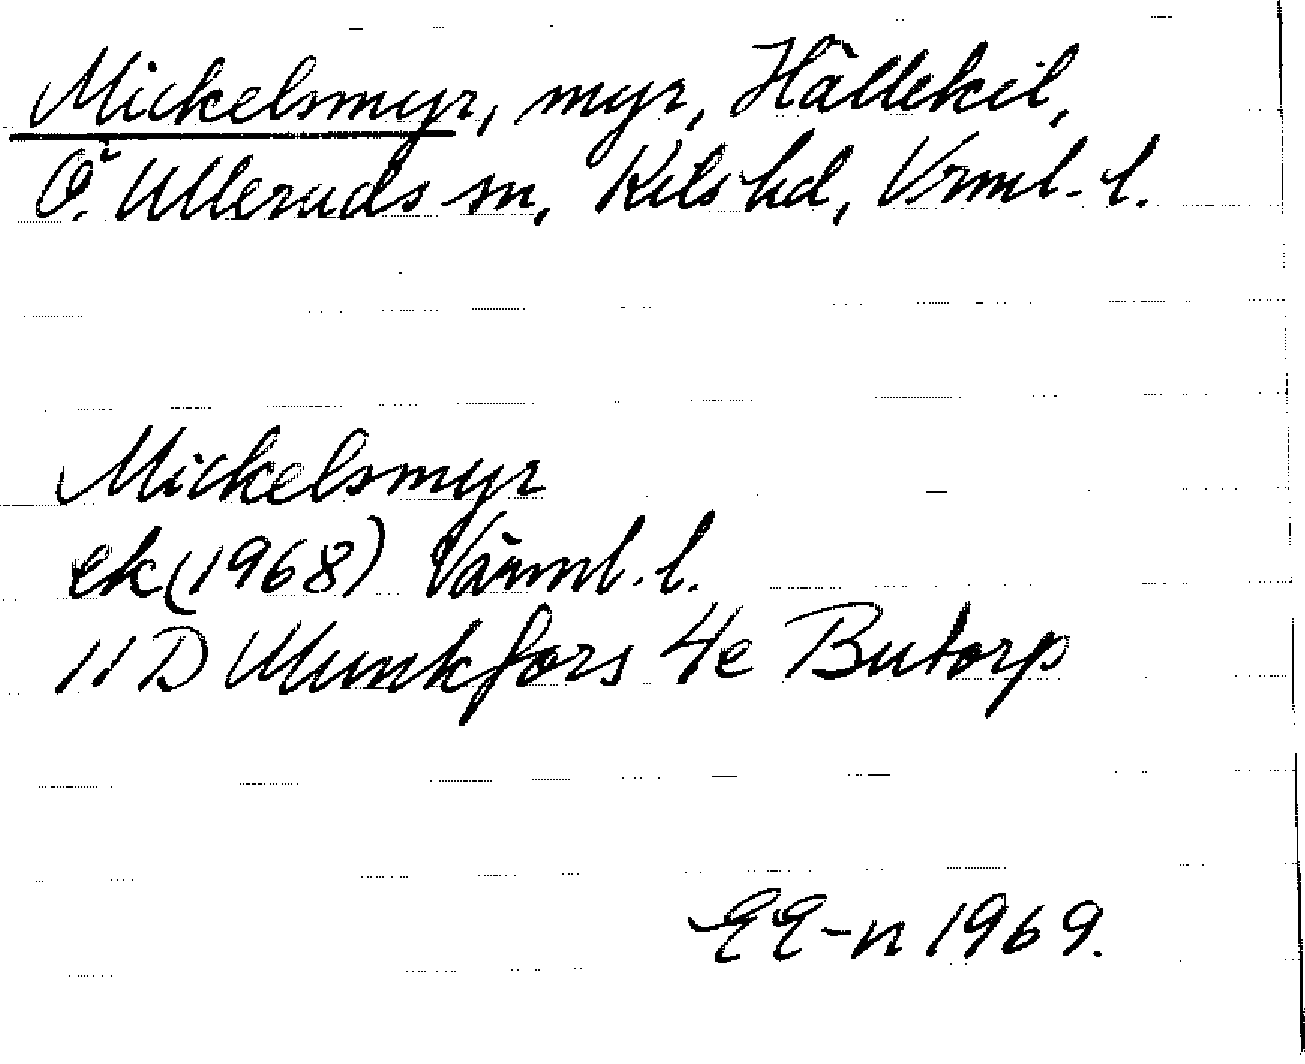 Mickelsmyr, myr, Hällekil,
Ö. Ulleruds sn, Kils hd, Vrml. l.
Mickelsmyr
ek (1968) Värml. l.
11 D Munkfors 4e Butorp
EE-n 1969.